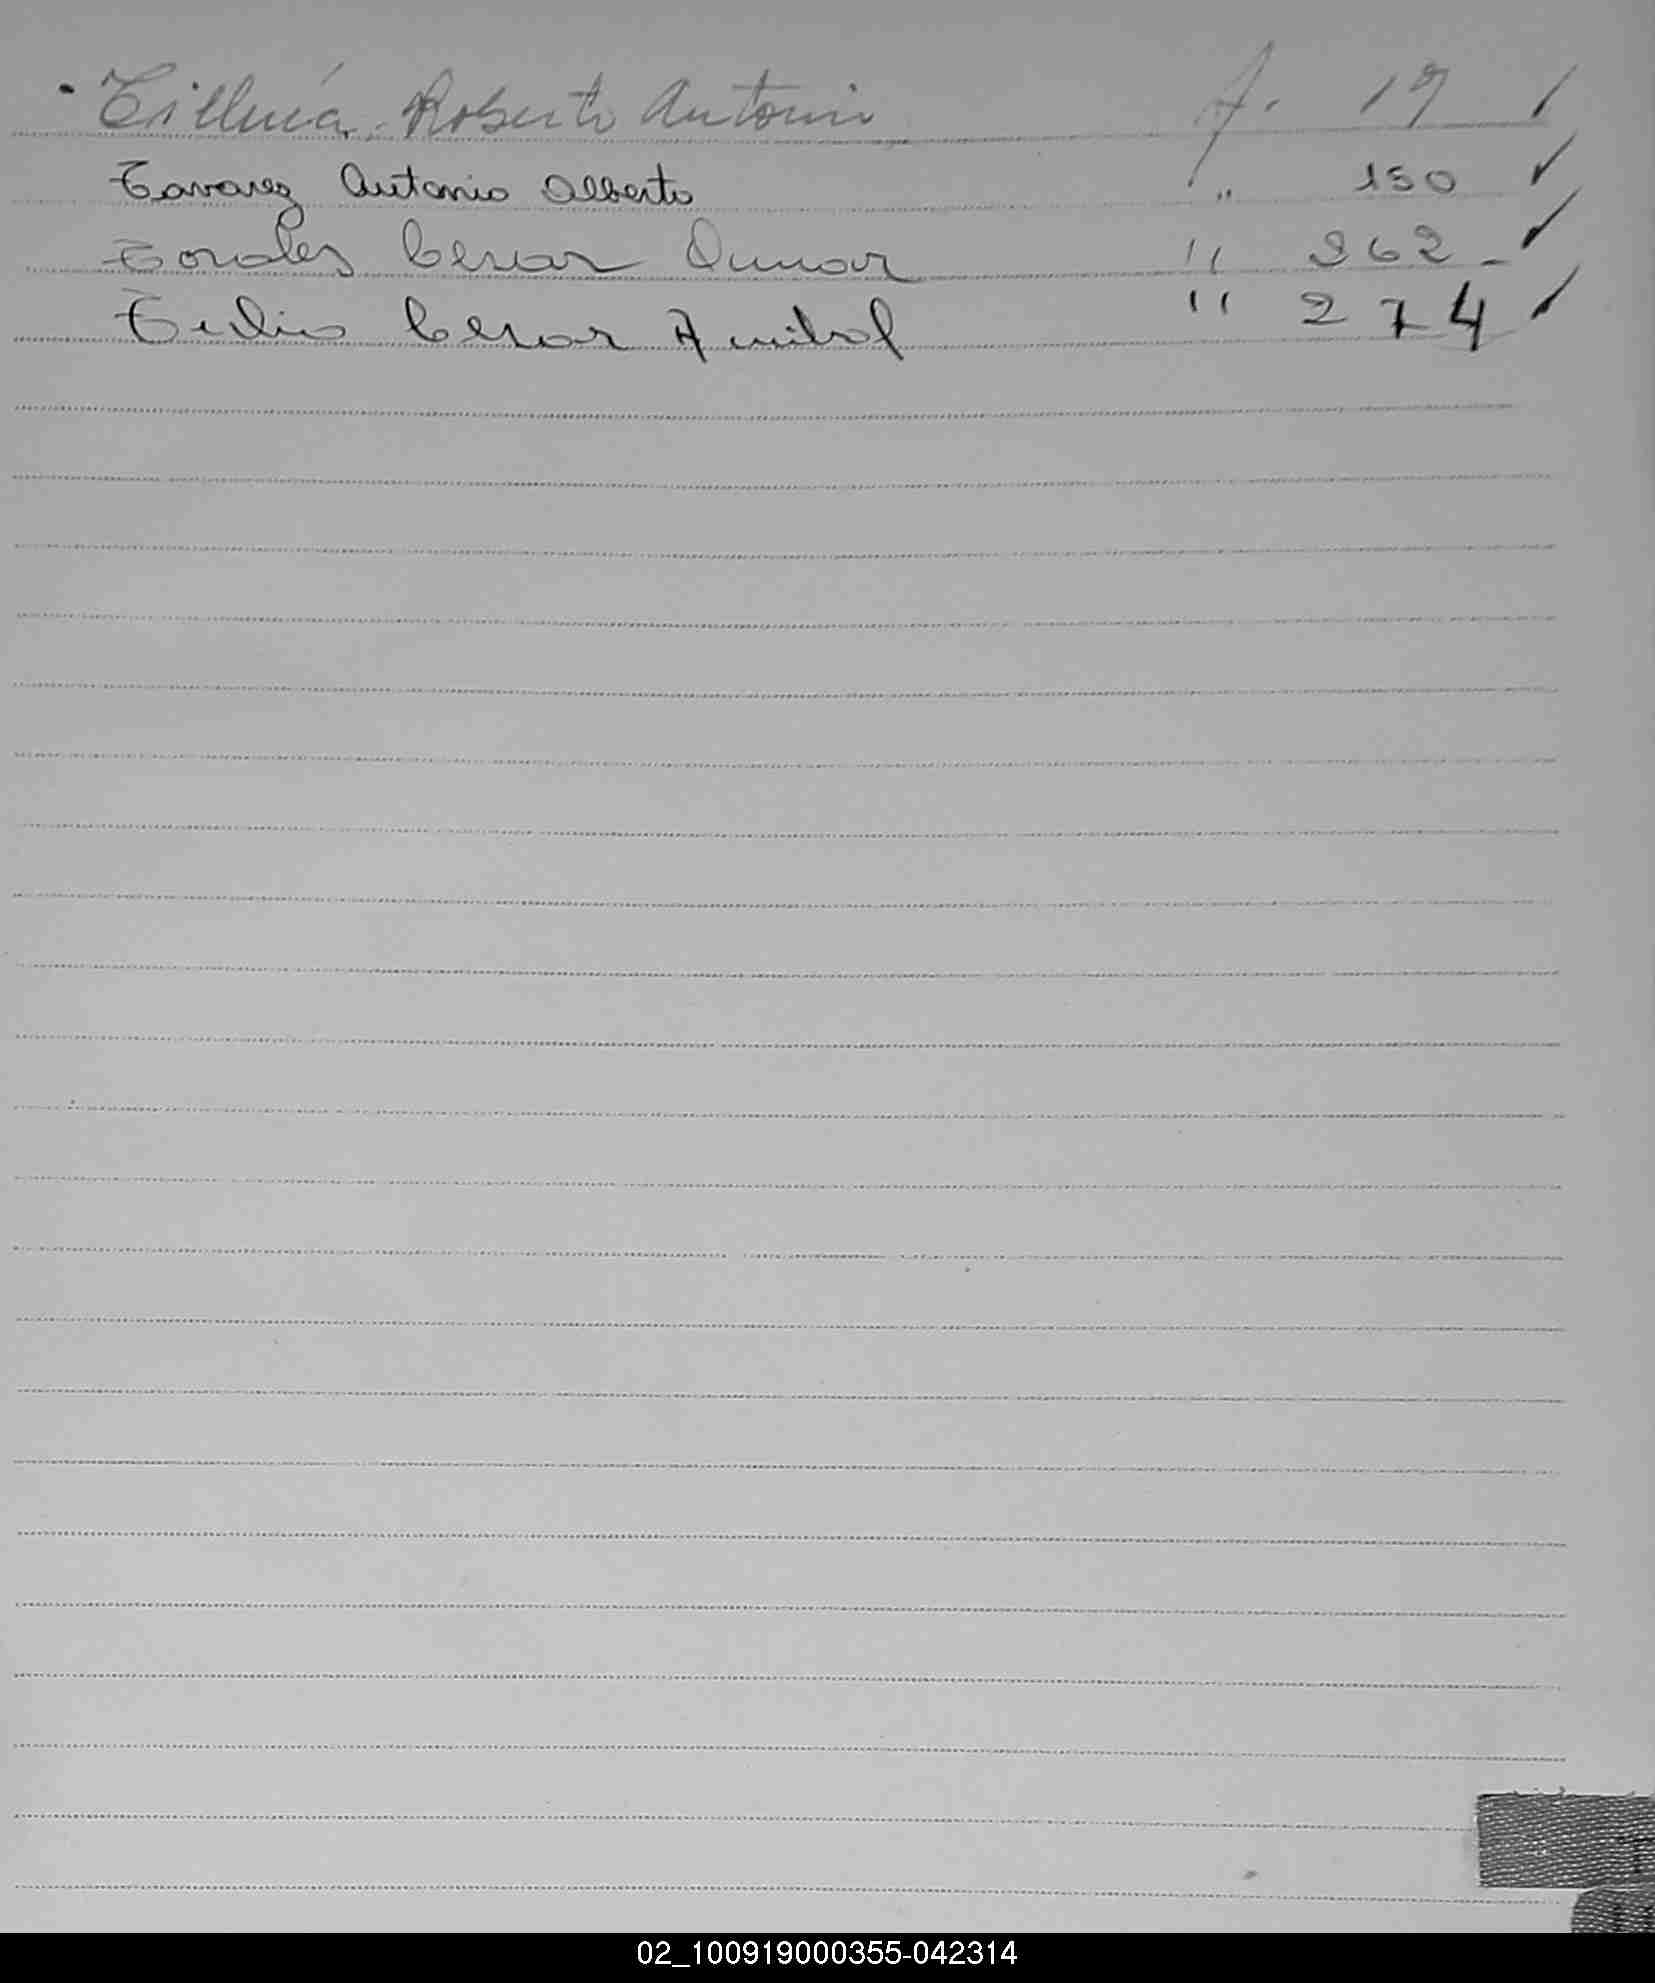 Roberto Antonio f. 19
Tavarez Antonio Alberto " 150
Torales Cesar Omar " 262
Tulio Cesar Anibal " 274
02_100919000355-042314